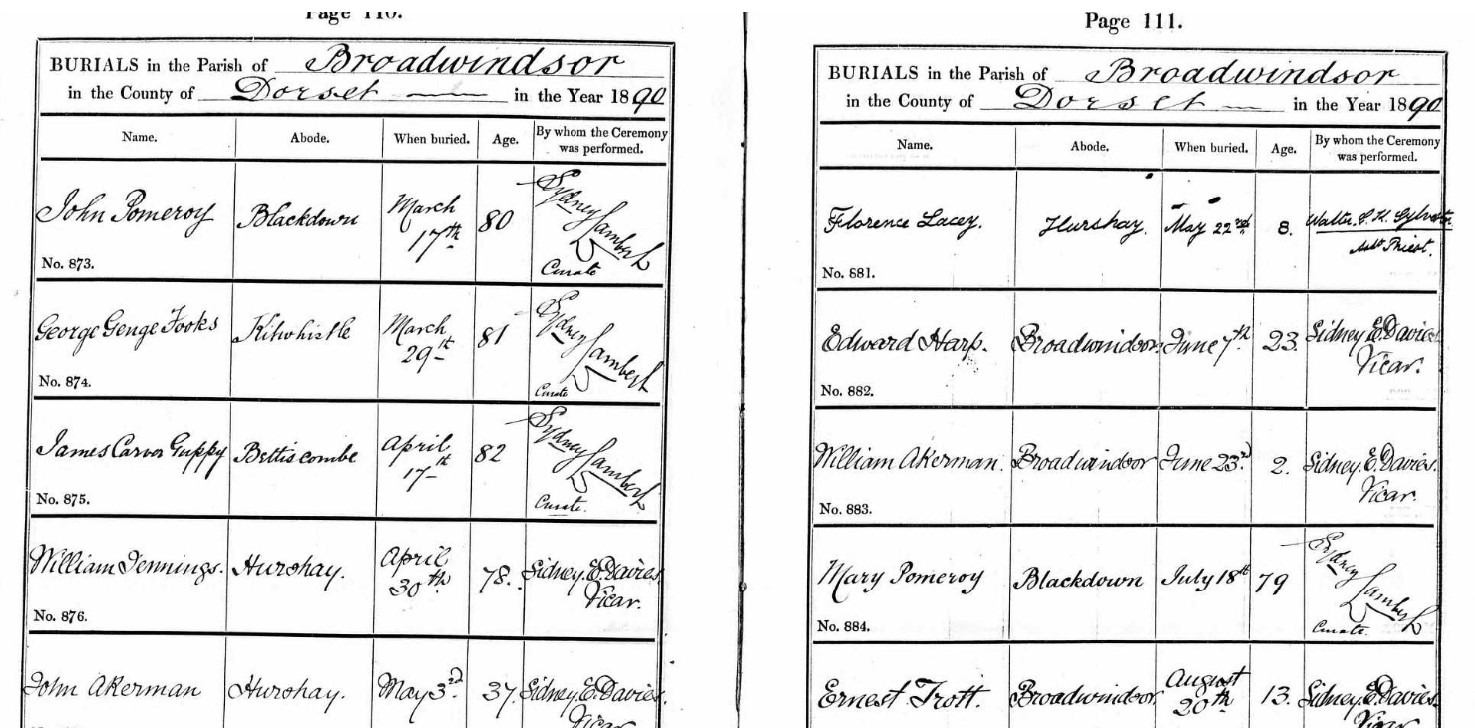 Page 110.
BURIALS in the Parish of Broadwindsor
in the County of Dorset in the Year 1890
Name. Abode. When buried. Age. By whom the Ceremony was performed.
John Pomeroy Blackdown March 17th 80 Sydney Lambert Curate
No. 873.
George Genge Fooks Kitwhistle March 29th 81 Sydney Lambert Curate
No. 874.
James Carver Guppy Bettiscombe April 17th 82 Sydney Lambert Curate.
No. 875.
William Jennings. Hurshay. April 30th 78. Sidney. E. Davies. Vicar.
No. 876.
John Akerman Hurshay. May 3rd. 37. Sidney. E. Davies. Vicar
Page 111.
BURIALS in the Parish of Broadwindsor
in the County of Dorset in the Year 1890
Name. Abode. When buried. Age. By whom the Ceremony was performed.
Florence Lacey. Hurshay. May 22nd. 8. Walter Priest.
No. 881.
Edward Harp. Broadwindsor June 7th. 23. Sidney E. Davies. Vicar.
No. 882.
William Akerman. Broadwindsor June 23d. 2. Sidney. E. Davies. Vicar.
No. 883.
Mary Pomeroy Blackdown July 18th 79 Sydney Lambert Curate.
No. 884.
Ernest Trott. Broadwindsor. August 20th 13. Sidney. E. Davies. Vicar